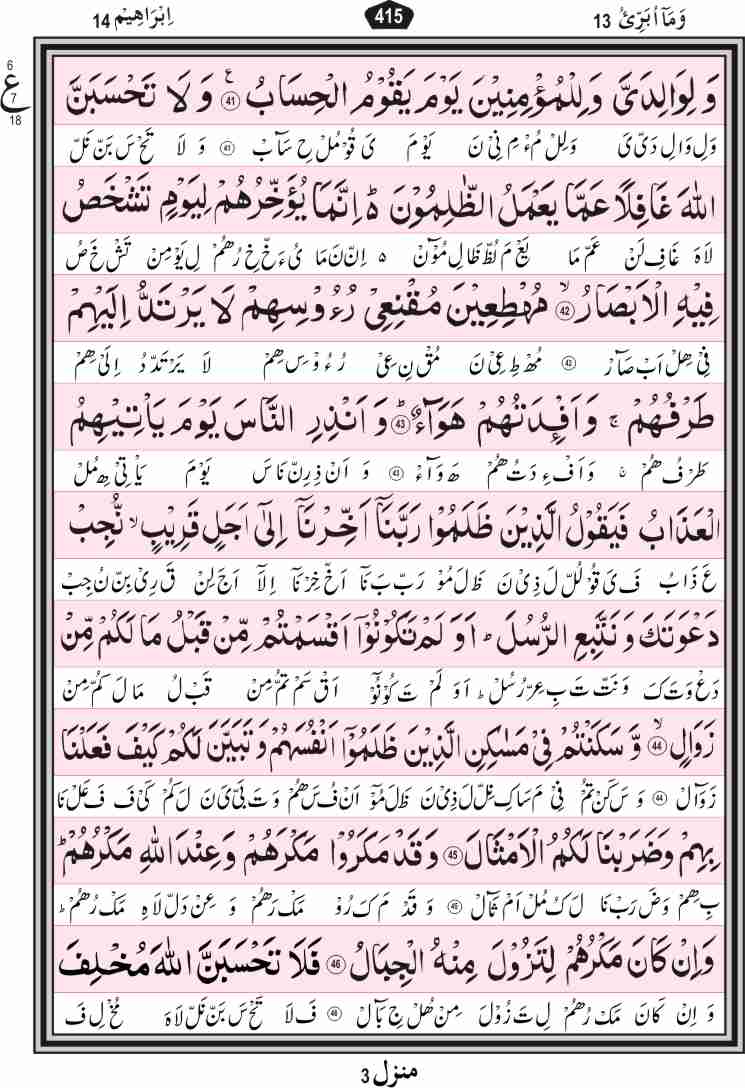 وَمَاۤ اُبَرِّئُ 13
415
اِبْرَاهِيْم 14
6
ع
7
18
وَ لِوَالِدَیَّ وَ لِلْمُؤْمِنِیْنَ یَوْمَ یَقُوْمُ الْحِسَابُ ۴۱ ع وَ لَا تَحْسَبَنَّ
وَلِ وَالِ دَیْ یَ وَلِلْ مُءْ مِ نِیْ نَ یَوْ مَ یَ قُوْ مُلْ حِ سَآبْ 41 وَ لَا تَحْ سَ بَنْ نَلّ
اللّٰهَ غَافِلًا عَمَّا یَعْمَلُ الظّٰلِمُوْنَ ؕ۬ اِنَّمَا یُؤَخِّرُهُمْ لِیَوْمٍ تَشْخَصُ
لَاہَ غَافِ لَنْ عَمْ مَا یَعْ مَ لُظْ ظَالِ مُوْٓنْ ۵ اِنْ نَ مَا یُ ءَخْ خِ رُهُمْ لِ یَوْ مِنْ تَشْ خَ صُ
فِیْهِ الْاَبْصَارُ ۙ 42 مُهْطِعِیْنَ مُقْنِعِیْ رُءُوْسِهِمْ لَا یَرْتَدُّ اِلَیْهِمْ
فِیْ هِلْ اَبْ صَآرْ 42 مُهْ طِ عِیْ نَ مُقْ نِ عِیْ رُ ءُوْ سِ هِمْ لَا یَرْ تَدْ دُ اِلَیْ هِمْ
طَرْفُهُمْ ۚ وَ اَفْـِٕدَتُهُمْ هَوَآءٌ ؕ 43 وَ اَنْذِرِ النَّاسَ یَوْمَ یَاْتِیْهِمُ
طَرْ فُ هُمْ وَ اَفْ ءِ دَ تُ هُمْ هَ وَآءْ 43 وَ اَنْ ذِ رِنْ نَاسَ یَوْ مَ یَاْ تِیْ هِ مُلْ
الْعَذَابُ فَیَقُوْلُ الَّذِیْنَ ظَلَمُوْا رَبَّنَاۤ اَخِّرْنَاۤ اِلٰۤی اَجَلٍ قَرِیْبٍ ۙ نُّجِبْ
عَ ذَابُ فَ یَ قُوْ لُلْ لَ ذِیْ نَ ظَ لَ مُوْ رَبْ بَ نَآ اَخْ خِرْ نَآ اِلَآ اَجَ لِنْ قَ رِیْ بِنْ نُ جِبْ
دَعْوَتَكَ وَ نَتَّبِعِ الرُّسُلَ ؕ اَوَ لَمْ تَكُوْنُوْۤا اَقْسَمْتُمْ مِّنْ قَبْلُ مَا لَكُمْ مِّنْ
دَعْ وَ تَ كَ وَ نَتْ تَ بِ عِرْ رُسُلْ ؕ اَوَ لَمْ تَ كُوْ نُوْٓ اَقْ سَمْ تُمْ مِنْ قَبْ لُ مَا لَ كُمْ مِنْ
زَوَالٍ ۙ 44 وَّ سَكَنْتُمْ فِیْ مَسٰكِنِ الَّذِیْنَ ظَلَمُوْۤا اَنْفُسَهُمْ وَ تَبَیَّنَ لَكُمْ كَیْفَ فَعَلْنَا
زَ وَآلْ 44 وَ سَ كَنْ تُمْ فِیْ مَ سَاكِ نِلْ لَ ذِیْ نَ ظَ لَ مُوْٓ اَنْ فُ سَ هُمْ وَ تَ بَیْ یَ نَ لَ كُمْ كَیْ فَ فَ عَلْ نَا
بِهِمْ وَ ضَرَبْنَا لَكُمُ الْاَمْثَالَ 45 وَ قَدْ مَكَرُوْا مَكْرَهُمْ وَ عِنْدَ اللّٰهِ مَكْرُهُمْ ؕ
بِ هِمْ وَ ضَ رَبْ نَا لَ كُ مُلْ اَمْ ثَآلْ 45 وَ قَدْ مَ كَ رُوْ مَكْ رَ هُمْ وَ عِنْ دَلْ لَاہِ مَكْ رُ هُمْ ؕ
وَ اِنْ كَانَ مَكْرُهُمْ لِتَزُوْلَ مِنْهُ الْجِبَالُ 46 فَلَا تَحْسَبَنَّ اللّٰهَ مُخْلِفَ
وَ اِنْ كَانَ مَكْ رُ هُمْ لِ تَ زُوْلَ مِنْ هُلْ جِ بَآلْ 46 فَ لَا تَحْ سَ بَنْ نَلْ لَاہَ مُخْ لِ فَ
منزل 3